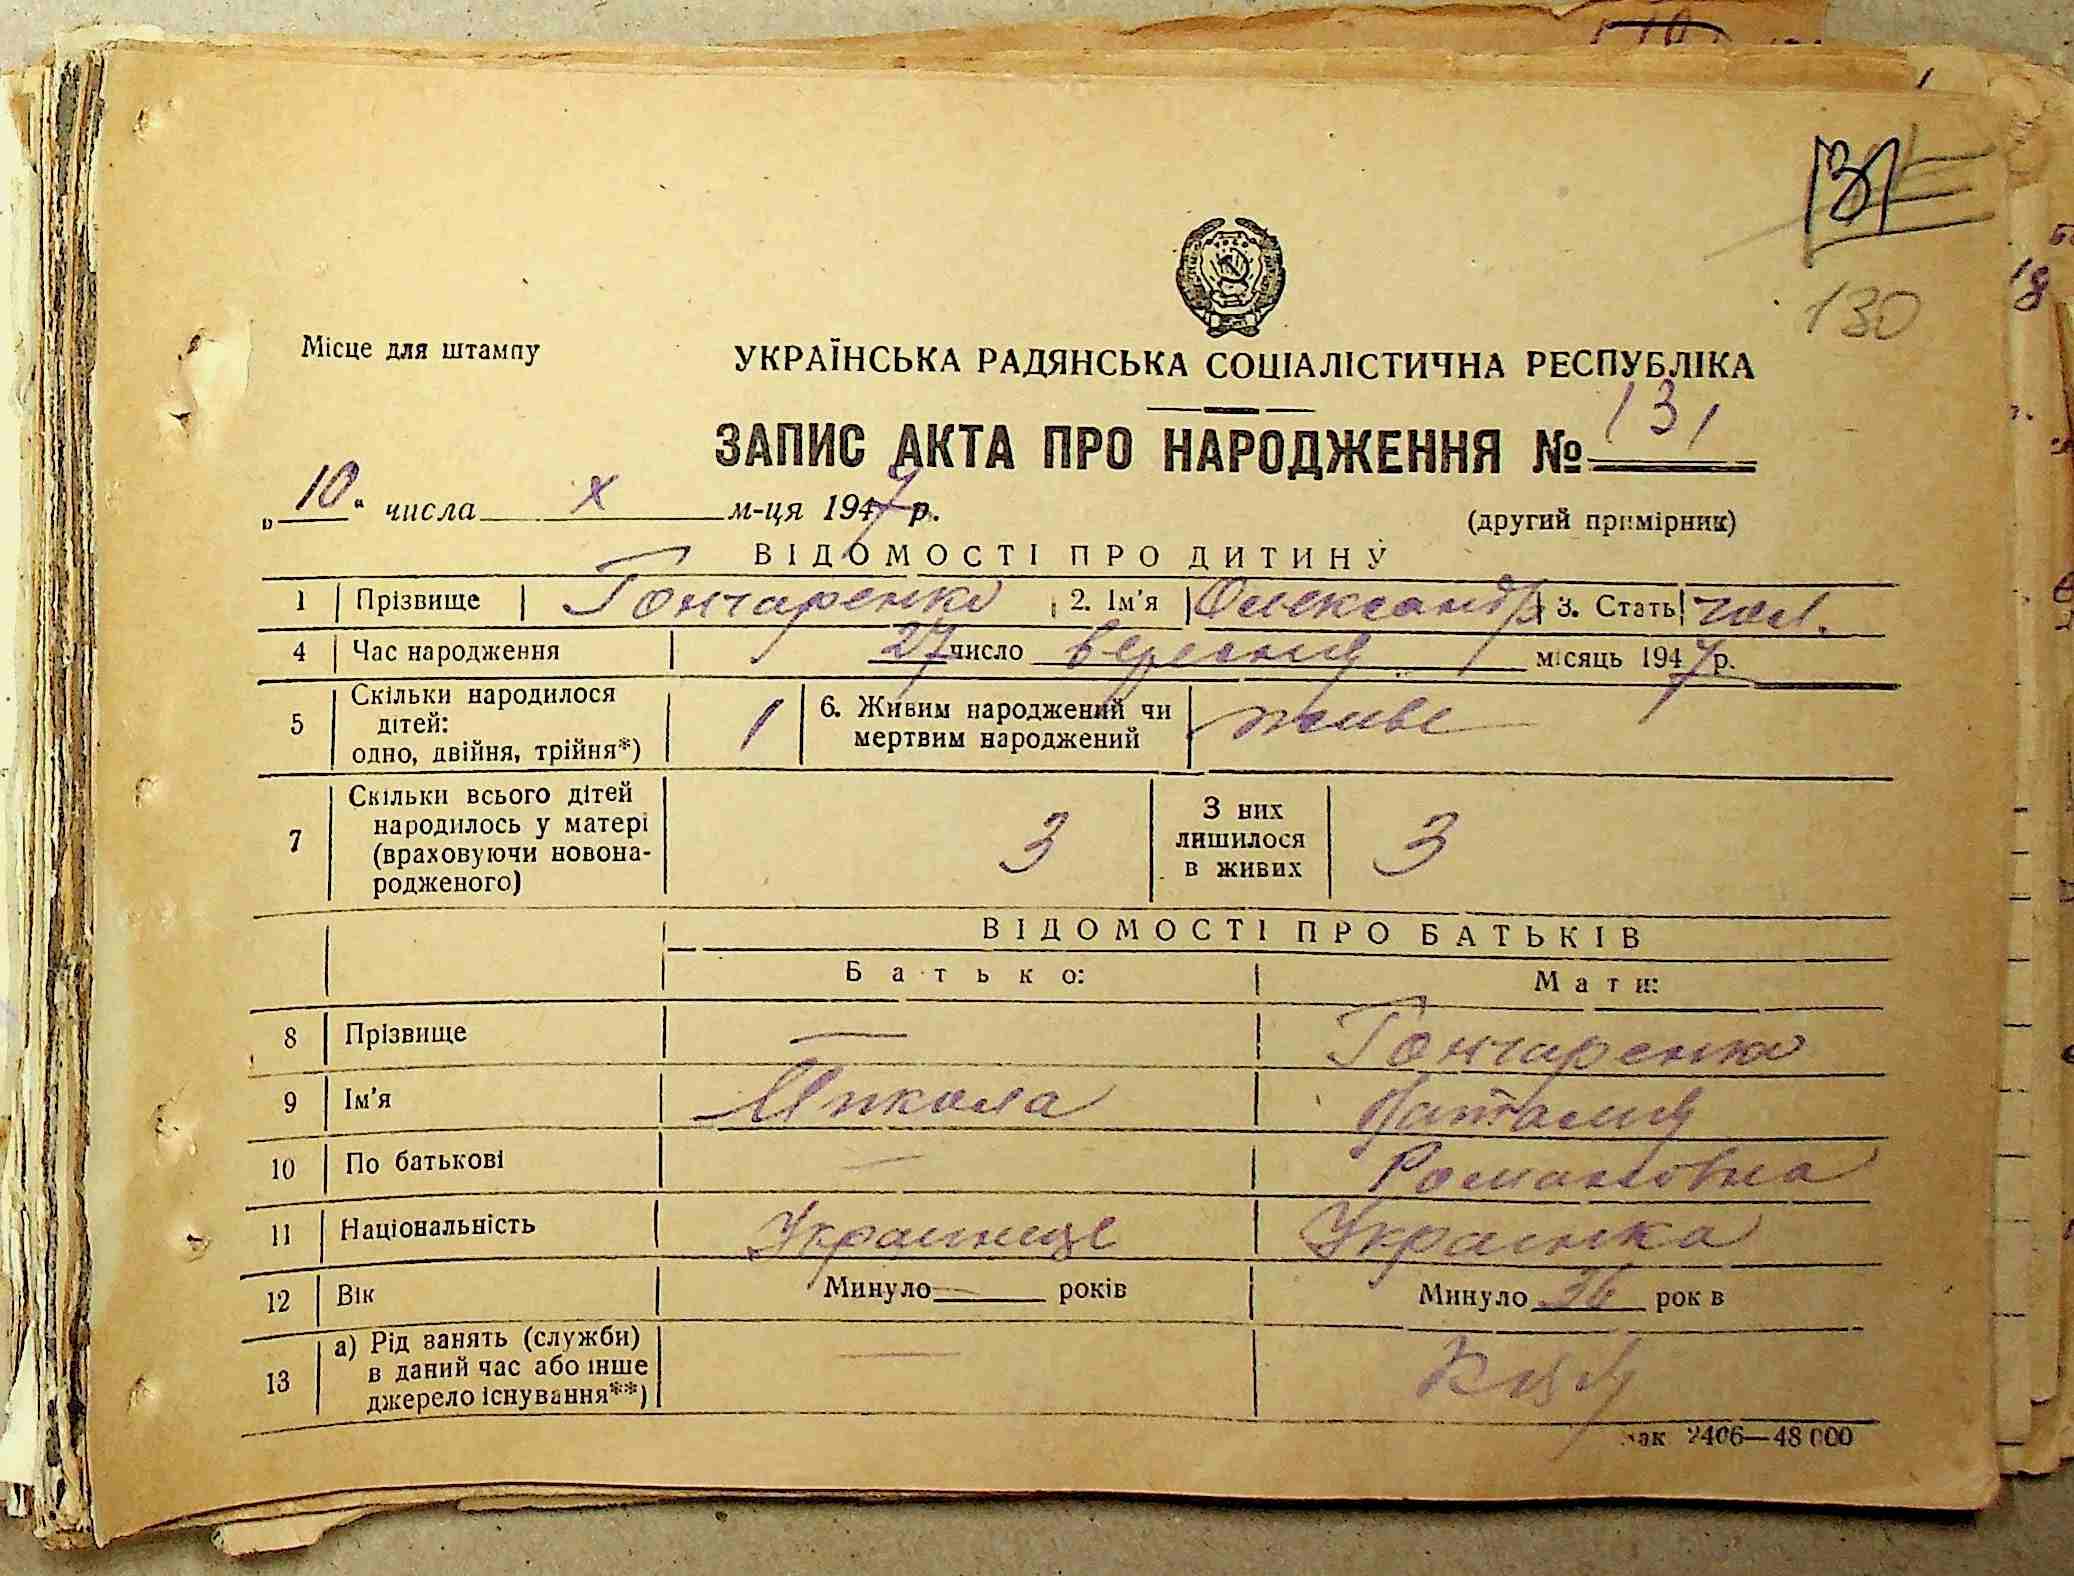 131
130
Місце для штампу
УКРАЇНСЬКА РАДЯНСЬКА СОЦІАЛІСТИЧНА РЕСПУБЛІКА
ЗАПИС АКТА ПРО НАРОДЖЕННЯ № 131
„10“ числа X м-ця 1947 р.
(другий примірник)
ВІДОМОСТІ ПРО ДИТИНУ
1 Прізвище Гончаренко 2. Ім'я Олександр 3. Стать чол.
4 Час народження 27 число вересня місяць 1947 р.
5 Скільки народилося дітей: одно, двійня, трійня*) 1 6. Живим народжений чи мертвим народжений живе
7 Скільки всього дітей народилось у матері (враховуючи новонародженого) 3 З них лишилося в живих 3
ВІДОМОСТІ ПРО БАТЬКІВ
Батько: Мати:
8 Прізвище — Гончаренко
9 Ім'я Микола Наталия
10 По батькові — Романовна
11 Національність Украинце Украинка
12 Вік Минуло — років Минуло 36 рок в
13 а) Рід занять (служби) в даний час або інше джерело існування**) —
зак 2406—48 000